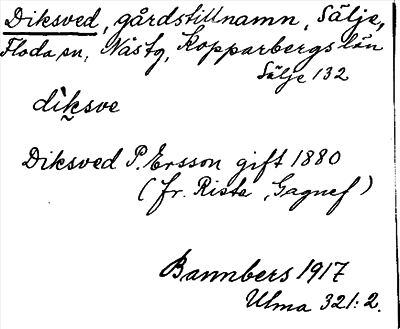 Diksved, gårdstillnamn, Sälje,
Floda sn, Nåstg, Kopparbergs län
Sälje 132
dìk̬sve
Diksved P. Ersson gift 1880
(fr. Rista, Gagnef)
Bannbers 1917
Ulma 321:2.